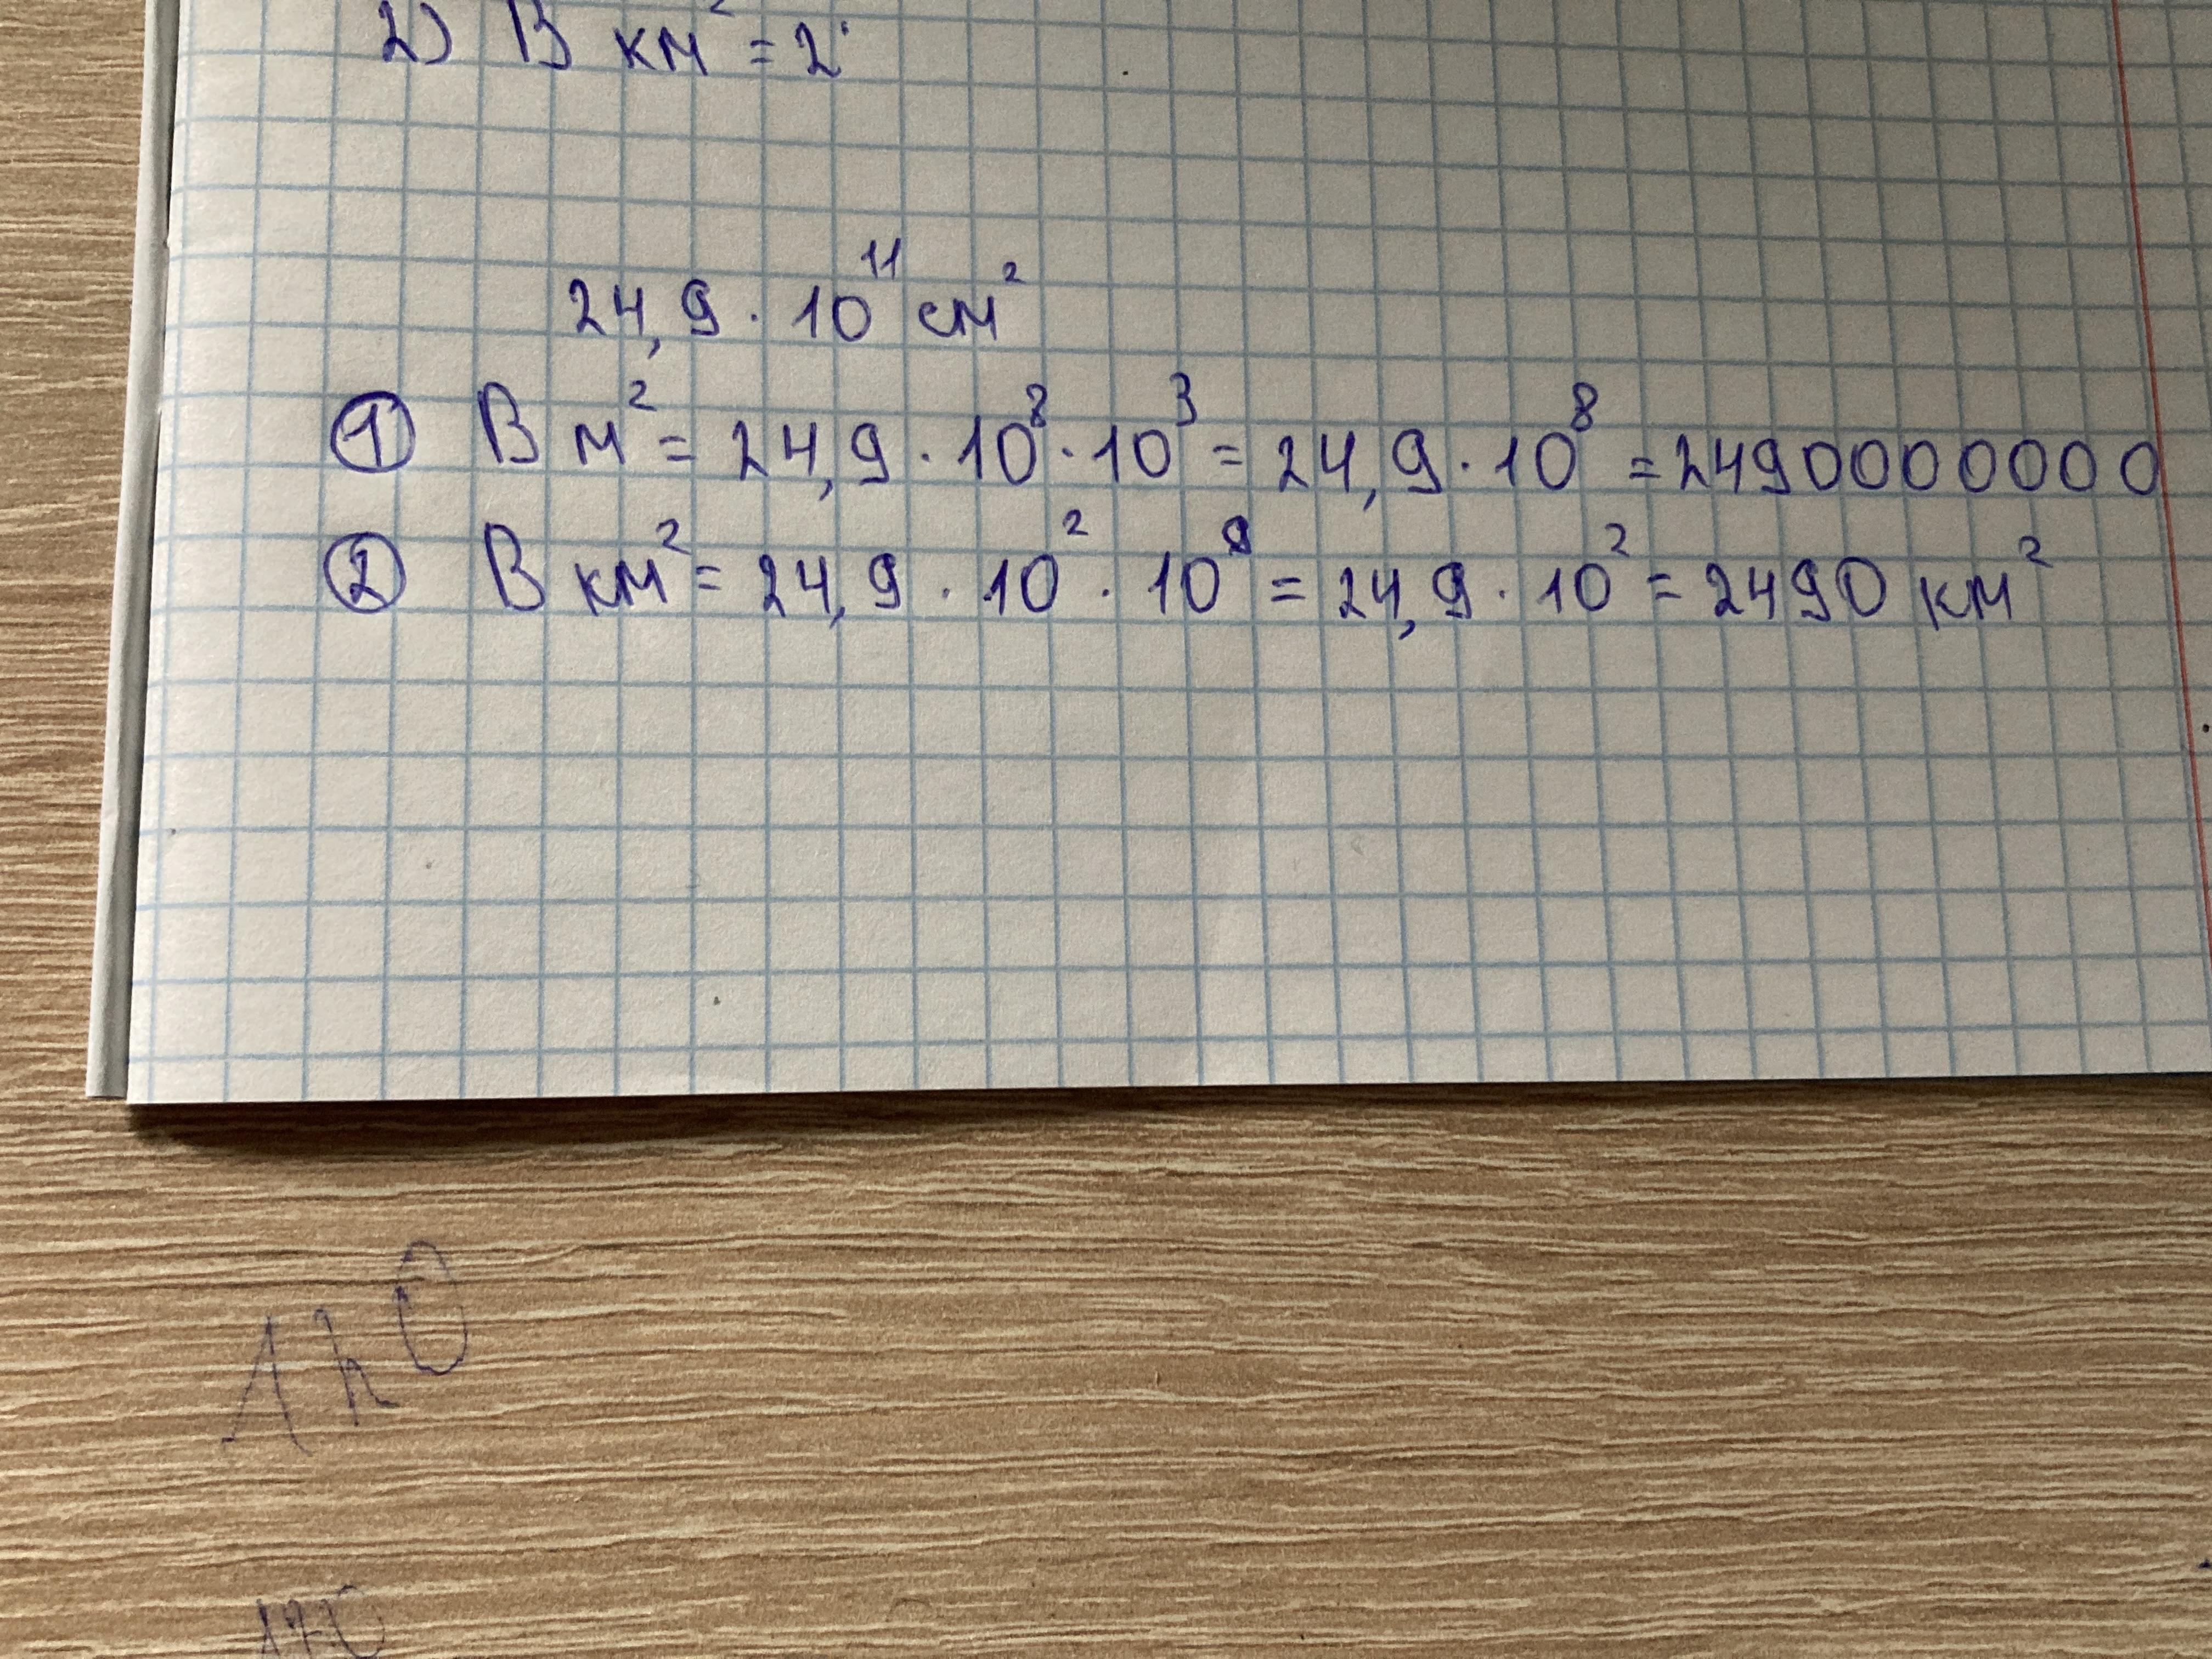 2) В км² = 2·
24,9 · 10¹¹ см²
① В м² = 24,9 · 10⁸ · 10³ = 24,9 · 10⁸ = 2490000000
② В км² = 24,9 · 10² · 10⁹ = 24,9 · 10² = 2490 км²